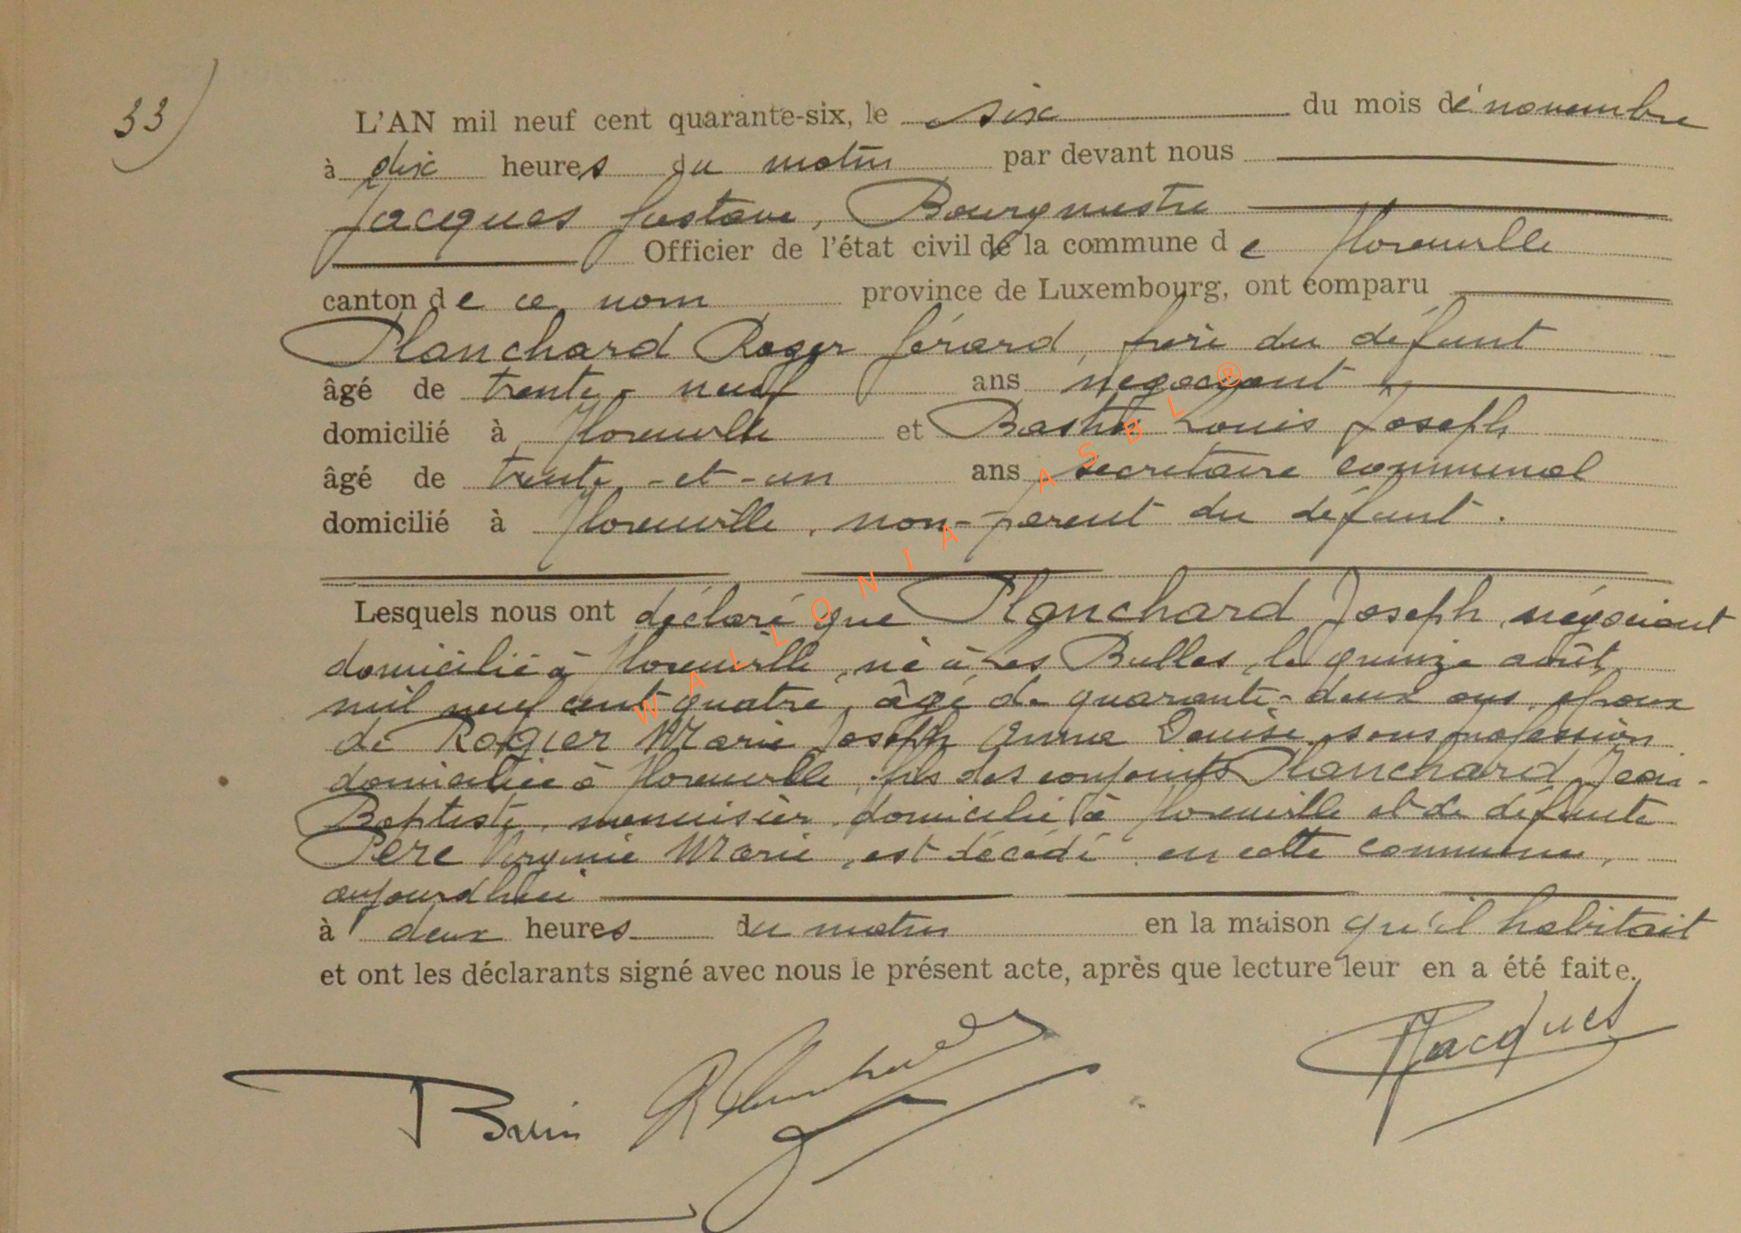 33)
L'AN mil neuf cent quarante-six, le six du mois de novembre
à dix heures du matin par devant nous
Jacques Gustave, Bourgmestre
Officier de l'état civil de la commune de Florenville
canton de ce nom province de Luxembourg, ont comparu
Planchard Roger Gérard, frère du défunt
âgé de trente-neuf ans négociant
domicilié à Florenville et Bastin Louis Joseph
âgé de trente-et-un ans secrétaire communal
domicilié à Florenville, non-parent du défunt.
Lesquels nous ont déclaré que Planchard Joseph, négociant
domicilié à Florenville, né à Les Bulles, le quinze août
mil neuf cent quatre, âgé de quarante-deux ans, époux
de Rogier Marie Joseph Anna Denise, sans profession
domiciliée à Florenville, fils des conjoints Planchard Jean-
Baptiste, menuisier, domicilié à Florenville et de défunte
Père Virginie Marie, est décédé en cette commune,
aujourd'hui
à deux heures du matin en la maison qu'il habitait
et ont les déclarants signé avec nous le présent acte, après que lecture leur en a été faite.
Jacques
WALLONIA ASBL ®